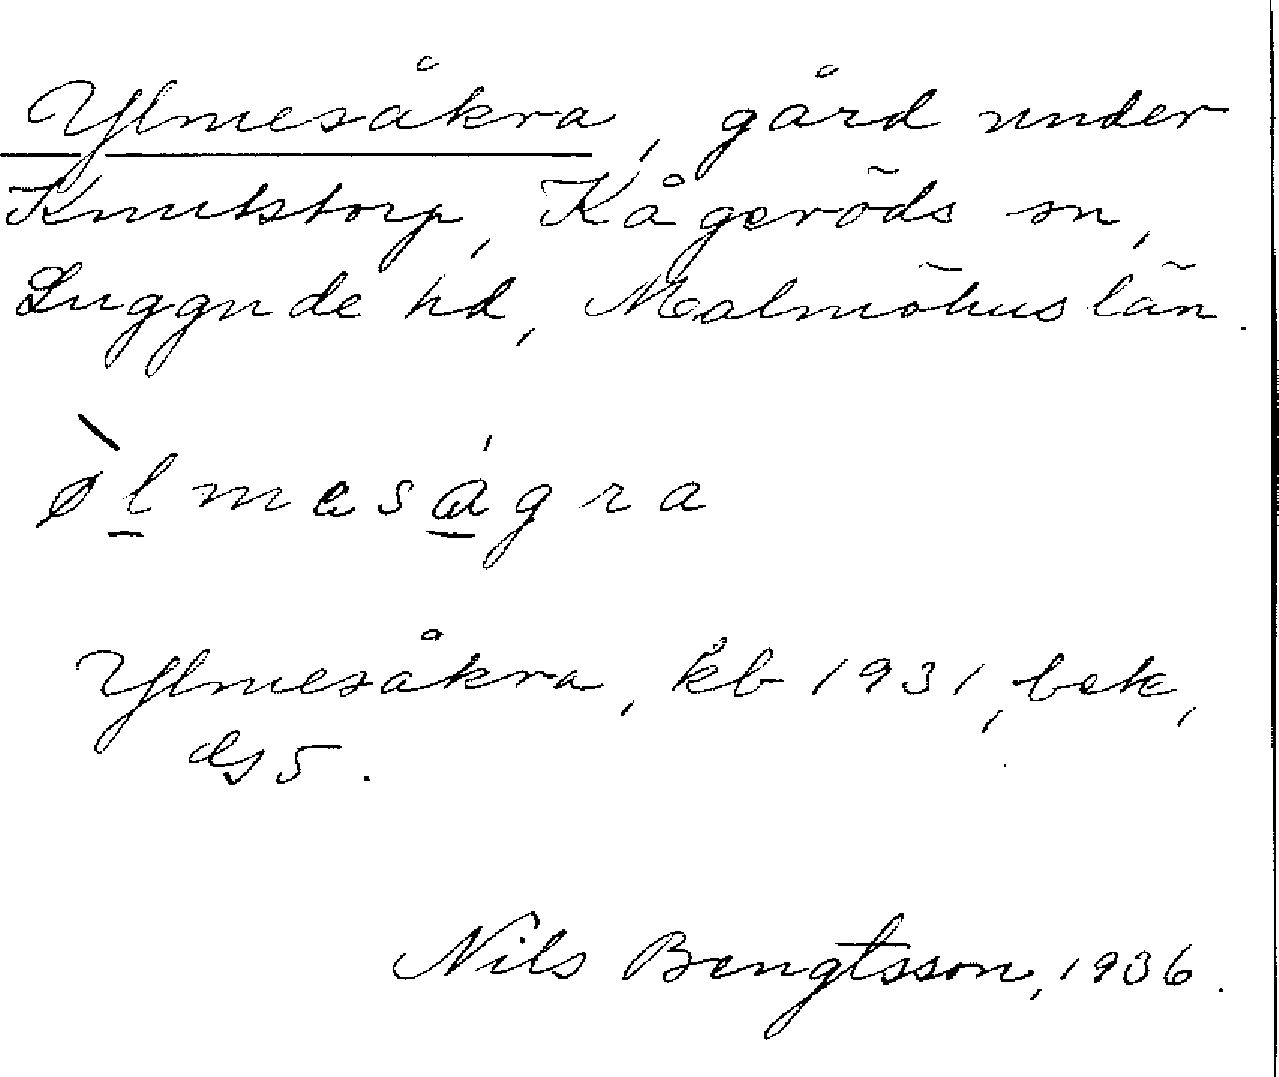 Ylmesåkra, gård under
Knutstorp, Kågeröds sn,
Luggude hd, Malmöhus län.
ø̀lmeságra
Ylmesåkra, kb 1931, bek,
ds 5.
Nils Bengtsson, 1936.